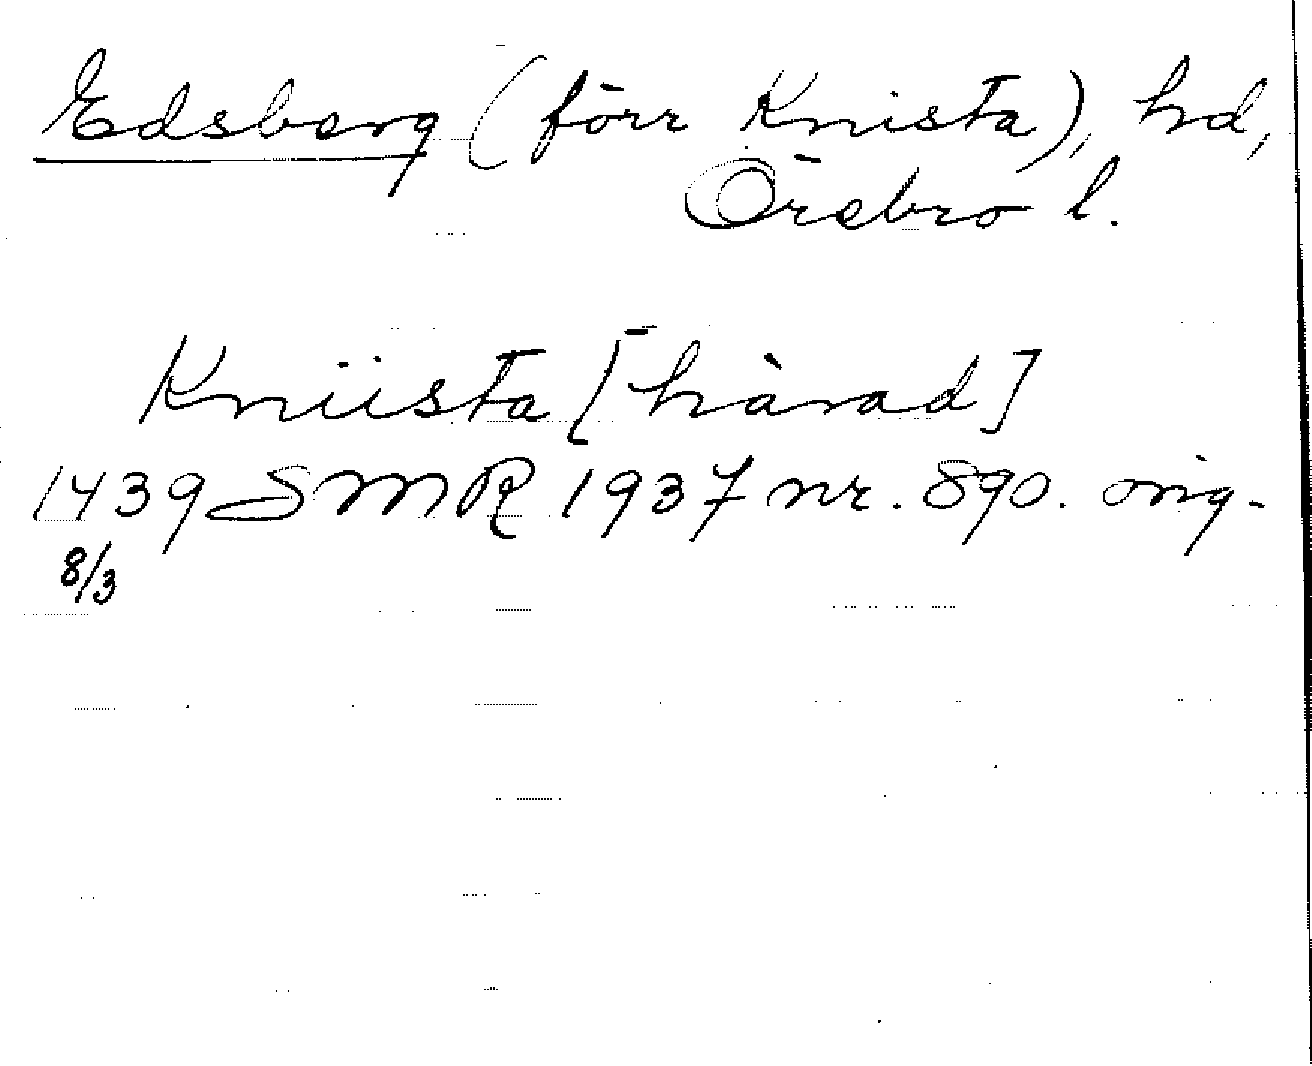 Edsberg (förr Knista), hd,
Örebro l.
Kniista [härad]
1439 SMR 1937 nr. 890. orig.
8/3